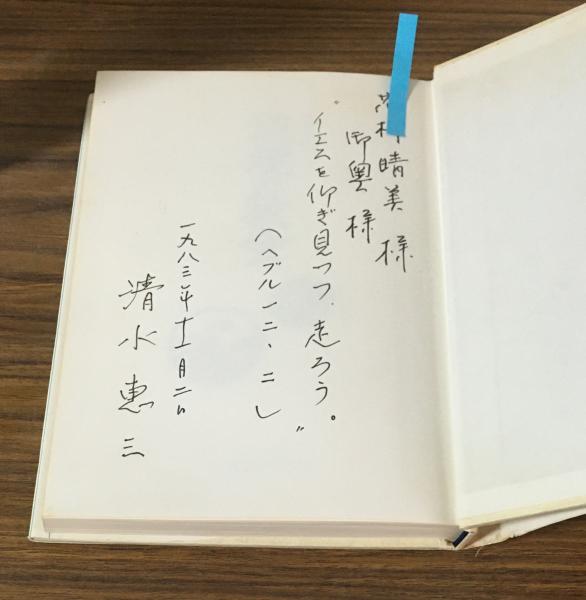 村晴美様
御奥様
"イエスを仰ぎ見つつ、走ろう。"
(ヘブル一二、二)
一九八三年十一月二日
清水恵三